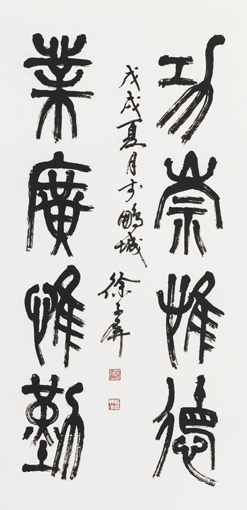 功崇惟德
業廣惟勤
戊戌夏月於鵬城
徐